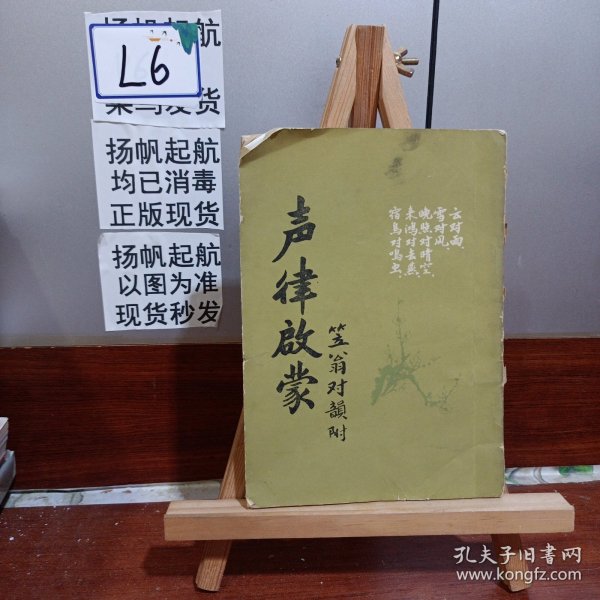 扬帆起航
L6
菜鸟发货
扬帆起航
均已消毒
正版现货
扬帆起航
以图为准
现货秒发
声律啟蒙
笠翁对韻附
云对雨、
雪对风、
晚照对晴空、
来鸿对去燕、
宿鸟对鸣虫、
孔夫子旧书网
www.kongfz.com